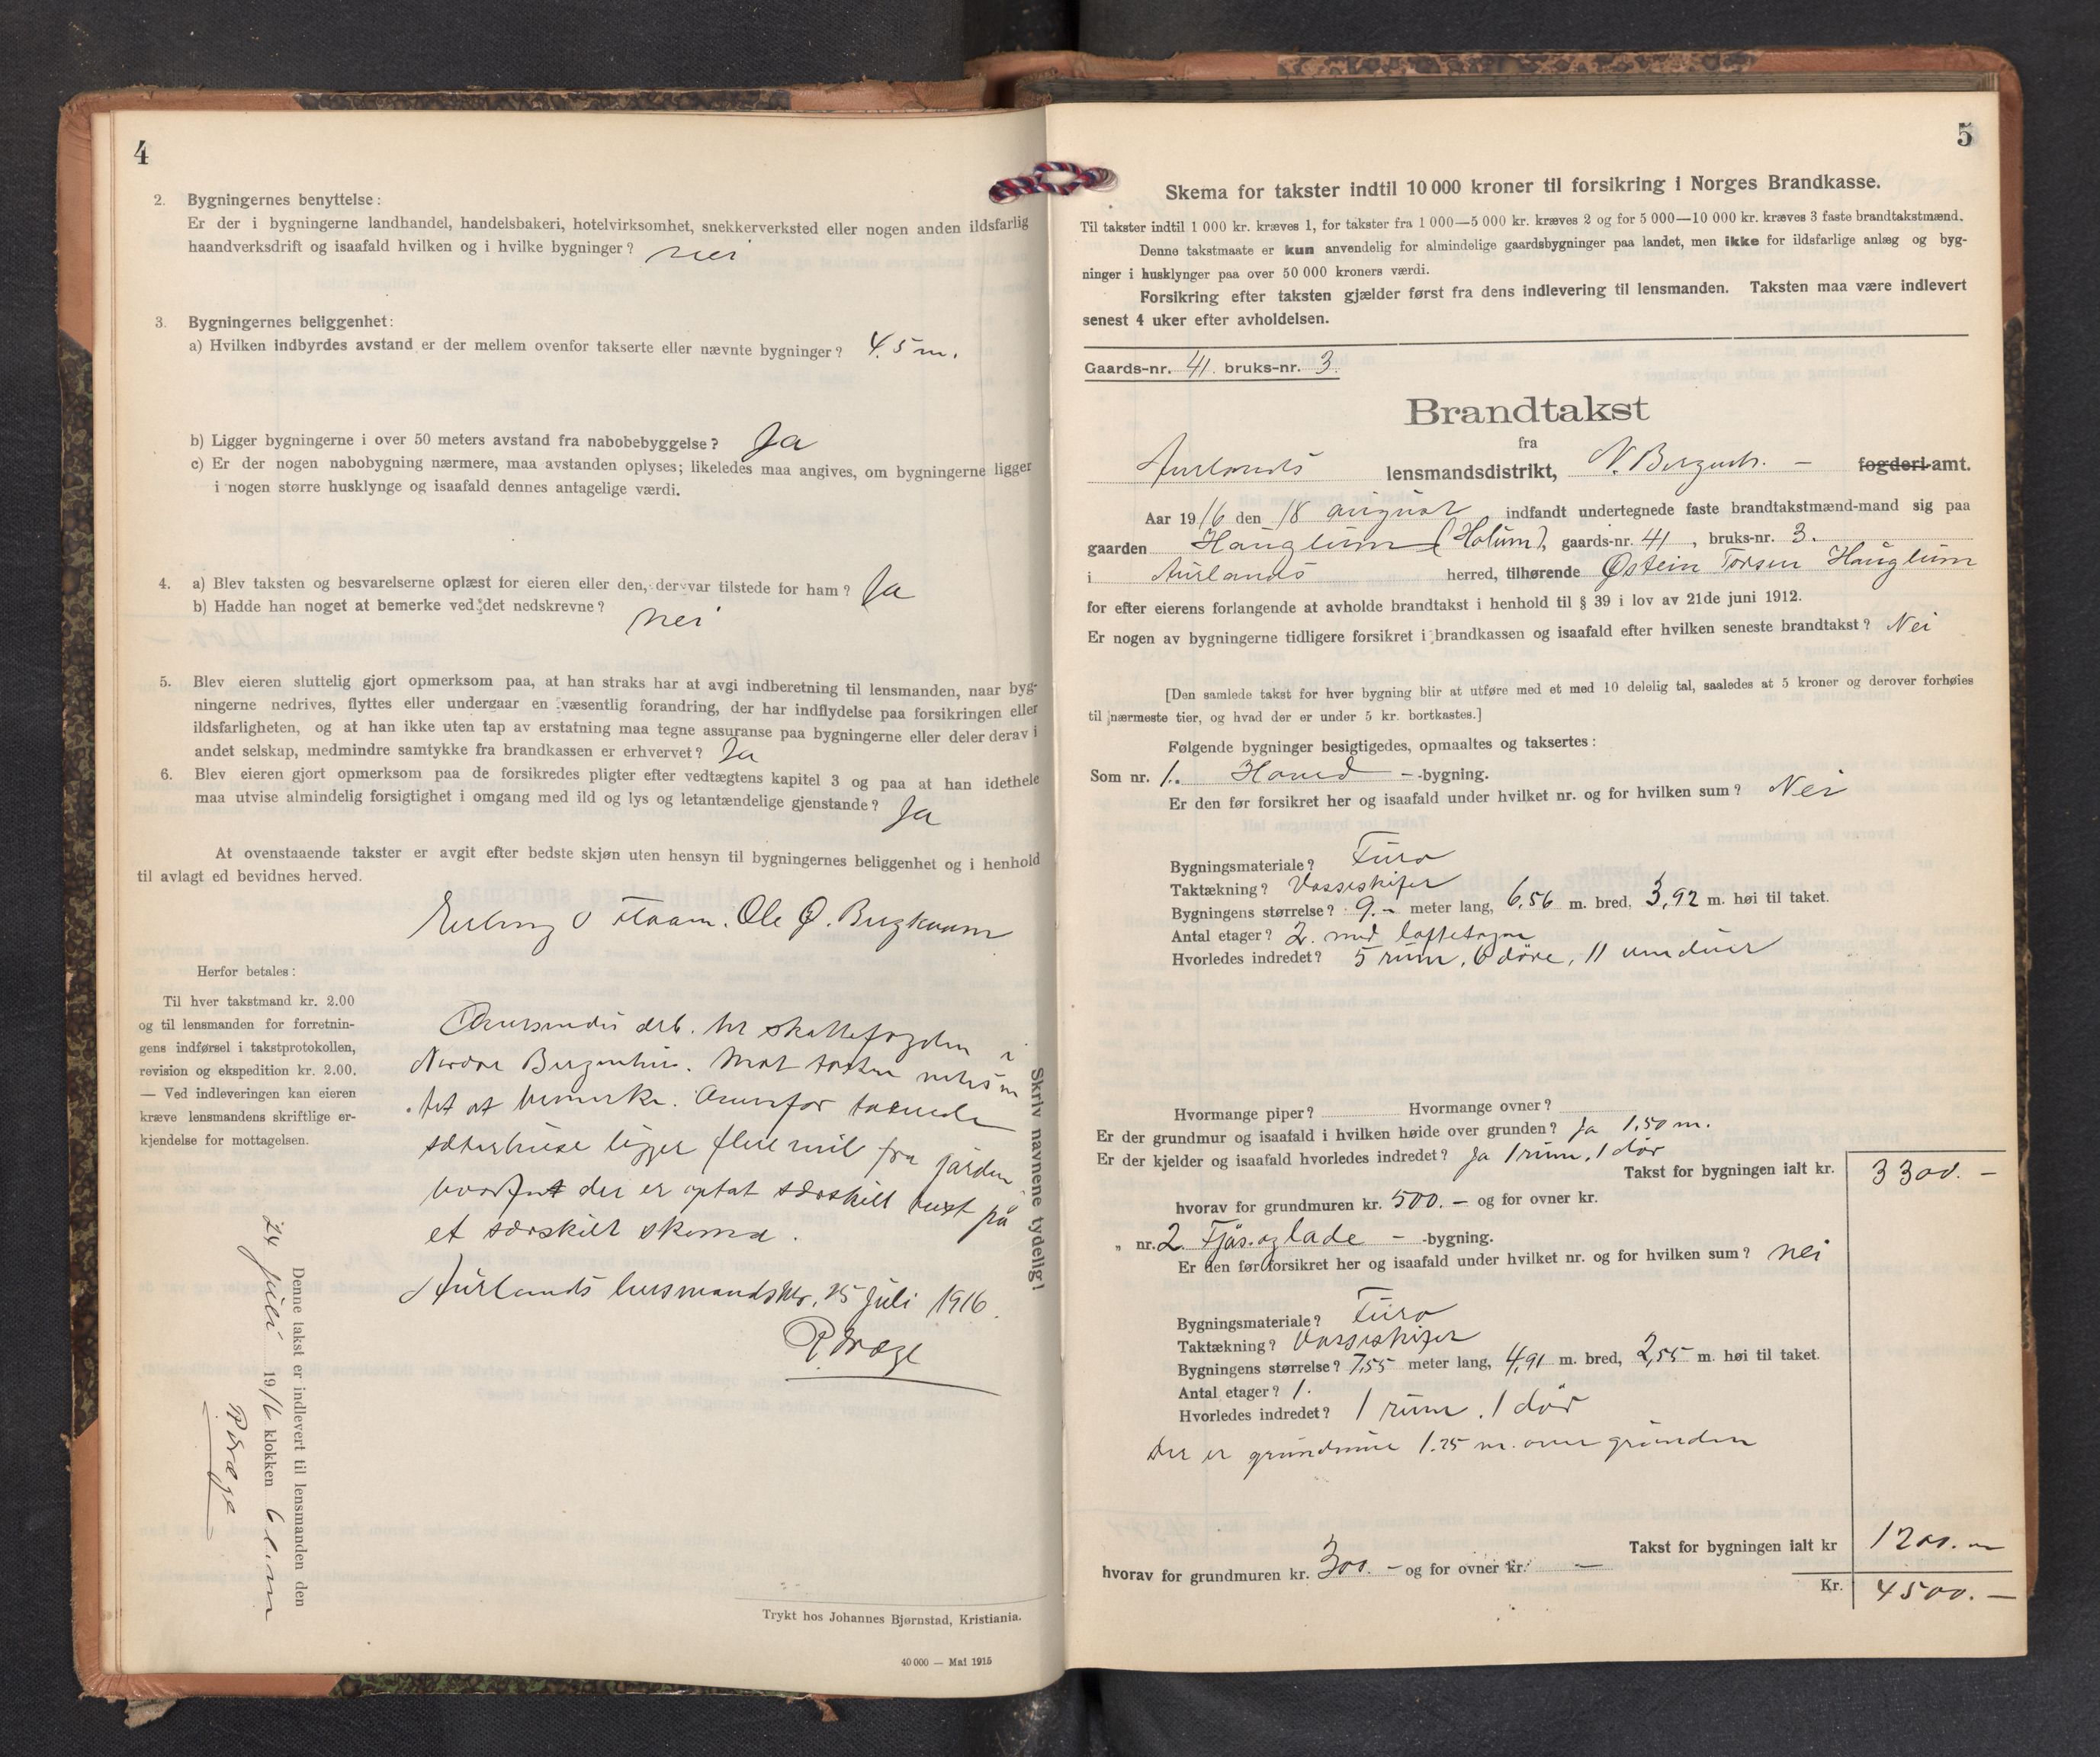 4
2. Bygningernes benyttelse:
Er der i bygningerne landhandel, handelsbakeri, hotelvirksomhet, snekkerverksted eller nogen anden ildsfarlig
haandverksdrift og isaafald hvilken og i hvilke bygninger? nei
3. Bygningernes beliggenhet:
a) Hvilken indbyrdes avstand er der mellem ovenfor takserte eller nævnte bygninger? 4.5 m.
b) Ligger bygningerne i over 50 meters avstand fra nabobebyggelse? Ja
c) Er der nogen nabobygning nærmere, maa avstanden oplyses; likeledes maa angives, om bygningerne ligger
i nogen større husklynge og isaafald dennes antagelige værdi.
4. a) Blev taksten og besvarelserne oplæst for eieren eller den, der var tilstede for ham? Ja
b) Hadde han noget at bemerke ved det nedskrevne? nei
5. Blev eieren sluttelig gjort opmerksom paa, at han straks har at avgi indberetning til lensmanden, naar byg-
ningerne nedrives, flyttes eller undergaar en væsentlig forandring, der har indflydelse paa forsikringen eller
ildsfarligheten, og at han ikke uten tap av erstatning maa tegne assuranse paa bygningerne eller deler derav i
andet selskap, medmindre samtykke fra brandkassen er erhvervet? Ja
6. Blev eieren gjort opmerksom paa de forsikredes pligter efter vedtægtens kapitel 3 og paa at han idethele
maa utvise almindelig forsigtighet i omgang med ild og lys og letantændelige gjenstande? Ja
At ovenstaaende takster er avgit efter bedste skjøn uten hensyn til bygningernes beliggenhet og i henhold
til avlagt ed bevidnes herved.
Erling O Flaam. Ole Ø. Bergkvam
Herfor betales:
Til hver takstmand kr. 2.00
og til lensmanden for forretnin-
gens indførsel i takstprotokollen,
revision og ekspedition kr. 2.00.
— Ved indleveringen kan eieren
kræve lensmandens skriftlige er-
kjendelse for mottagelsen.
Oversendes ærb. hr skattefogden i
Nordre Bergenhus. Mot taksten intet
at bemerke. Ovenfor takserte
sæterhuse ligger flere mil fra gården
hvorfor der er optat særskilt takst på
et særskilt skema.
Aurlands lensmandsktr. 25 juli 1916.
P. Dræge
Skriv navnene tydelig!
Denne takst er indlevert til lensmanden den
24 juli 1916 klokken 6 e.m
P. Dræge
Trykt hos Johannes Bjørnstad, Kristiania.
40 000 — Mai 1915
5
Skema for takster indtil 10 000 kroner til forsikring i Norges Brandkasse.
Til takster indtil 1 000 kr. kræves 1, for takster fra 1 000—5 000 kr. kræves 2 og for 5 000—10 000 kr. kræves 3 faste brandtakstmænd.
Denne takstmaate er kun anvendelig for almindelige gaardsbygninger paa landet, men ikke for ildsfarlige anlæg og byg-
ninger i husklynger paa over 50 000 kroners værdi.
Forsikring efter taksten gjælder først fra dens indlevering til lensmanden. Taksten maa være indlevert
senest 4 uker efter avholdelsen.
Gaards-nr. 41. bruks-nr. 3.
Brandtakst
fra
Aurlands lensmandsdistrikt, N. Bergenh. – fogderi-amt.
Aar 1916 den 18 august indfandt undertegnede faste brandtakstmænd-mand sig paa
gaarden Hauglum (Holum), gaards-nr. 41, bruks-nr. 3.
i Aurlands herred, tilhørende Østein Torsen Hauglum
for efter eierens forlangende at avholde brandtakst i henhold til § 39 i lov av 21de juni 1912.
Er nogen av bygningerne tidligere forsikret i brandkassen og isaafald efter hvilken seneste brandtakst? Nei
[Den samlede takst for hver bygning blir at utføre med et med 10 delelig tal, saaledes at 5 kroner og derover forhøies
til nærmeste tier, og hvad der er under 5 kr. bortkastes.]
Følgende bygninger besigtigedes, opmaaltes og taksertes:
Som nr. 1. Hoved – -bygning.
Er den før forsikret her og isaafald under hvilket nr. og for hvilken sum? Nei
Bygningsmateriale? Furu
Taktækning? Vosseskifer
Bygningens størrelse? 9.– meter lang, 6,56 m. bred, 3,92 m. høi til taket.
Antal etager? 2. med loftetagen
Hvorledes indredet? 5 rum, 6 døre, 11 vinduer
Hvormange piper? Hvormange ovner?
Er der grundmur og isaafald i hvilken høide over grunden? Ja 1,50 m.
Er der kjelder og isaafald hvorledes indredet? Ja 1 rum, 1 dør
Takst for bygningen ialt kr. 3300.–
hvorav for grundmuren kr. 500.– og for ovner kr.
„ nr. 2. Fjøs og lade – -bygning.
Er den før forsikret her og isaafald under hvilket nr. og for hvilken sum? nei
Bygningsmateriale? Furu
Taktækning? Vosseskifer
Bygningens størrelse? 7,55 meter lang, 4,91 m. bred, 2,55 m. høi til taket.
Antal etager? 1.
Hvorledes indredet? 1 rum, 1 dør
Der er grundmur 1.25 m. over grunden
Takst for bygningen ialt kr 1200.–
hvorav for grundmuren kr. 300.– og for ovner kr. –
Kr. 4500.–